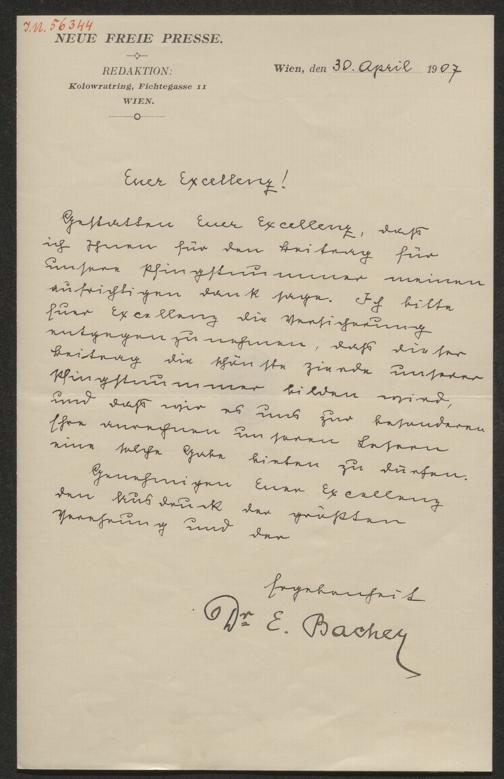 J.N. 56344
NEUE FREIE PRESSE.
REDAKTION:
Kolowratring, Fichtegasse 11
WIEN.
Wien, den 30. April 1907
Euer Excellenz!
Gestatten Euer Excellenz, daß
ich Ihnen für den Beitrag für
unsere Pfingstnummer meinen
aufrichtigen Dank sage. Ich bitte
Euer Excellenz die Versicherung
entgegenzunehmen, daß dieser
Beitrag die schönste Zierde unserer
Pfingstnummer bilden wird,
und daß wir es uns zur besonderen
Ehre anrechnen unseren Lesern
eine solche Gabe bieten zu dürfen.
Genehmigen Euer Excellenz
den Ausdruck der größten
Verehrung und der
Ergebenheit
Dr E.